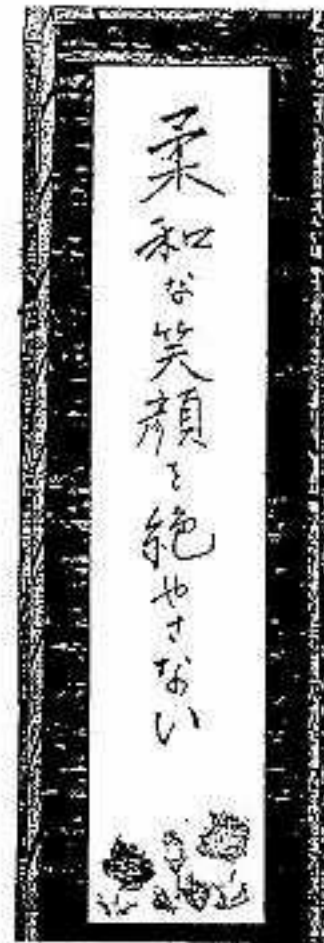 柔和な笑顔を絶やさない